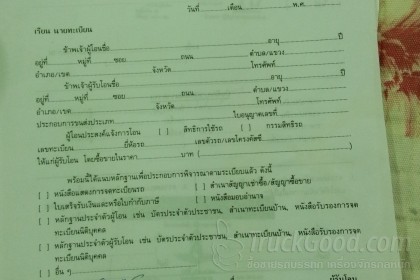 วันที่..........เดือน....................พ.ศ...........
เรียน นายทะเบียน
ข้าพเจ้าผู้โอนชื่อ....................อายุ..........ปี
อยู่ที่..........หมู่ที่..........ซอย..........ถนน..........ตำบล/แขวง..........
อำเภอ/เขต..........จังหวัด..........โทรศัพท์..........
ข้าพเจ้าผู้รับโอนชื่อ....................อายุ..........ปี
อยู่ที่..........หมู่ที่..........ซอย..........ถนน..........ตำบล/แขวง..........
อำเภอ/เขต..........จังหวัด..........โทรศัพท์..........
ประกอบการขนส่งประเภท..........ใบอนุญาตเลขที่..........
ผู้โอนประสงค์แจ้งการโอน [ ] สิทธิการใช้รถ [ ] กรรมสิทธิ์รถ
เลขทะเบียน..........ยี่ห้อรถ..........เลขตัวรถ/เลขโครงคัสซี..........
ให้แก่ผู้รับโอน โดยซื้อขายในราคา..........บาท (..........)
พร้อมนี้ได้แนบหลักฐานเพื่อประกอบการพิจารณาตามระเบียบแล้ว ดังนี้
[ ] หนังสือแสดงการจดทะเบียนรถ [ ] สำเนาสัญญาเช่าซื้อ/สัญญาซื้อขาย
[ ] ใบเสร็จรับเงินและหรือใบกำกับภาษี [ ] หนังสือมอบอำนาจ
[ ] หลักฐานประจำตัวผู้โอน เช่น บัตรประจำตัวประชาชน, สำเนาทะเบียนบ้าน, หนังสือรับรองการจด
ทะเบียนนิติบุคคล
[ ] หลักฐานประจำตัวผู้รับโอน เช่น บัตรประจำตัวประชาชน, สำเนาทะเบียนบ้าน, หนังสือรับรองการจด
ทะเบียนนิติบุคคล
[ ] อื่น ๆ
TruckGood.com